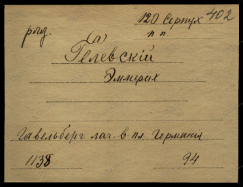 120 Серпух 402
ряд. п п
(п)
Гелевскій
Эмерих
Гавельберг лаг. в пл. Германія
1138 94